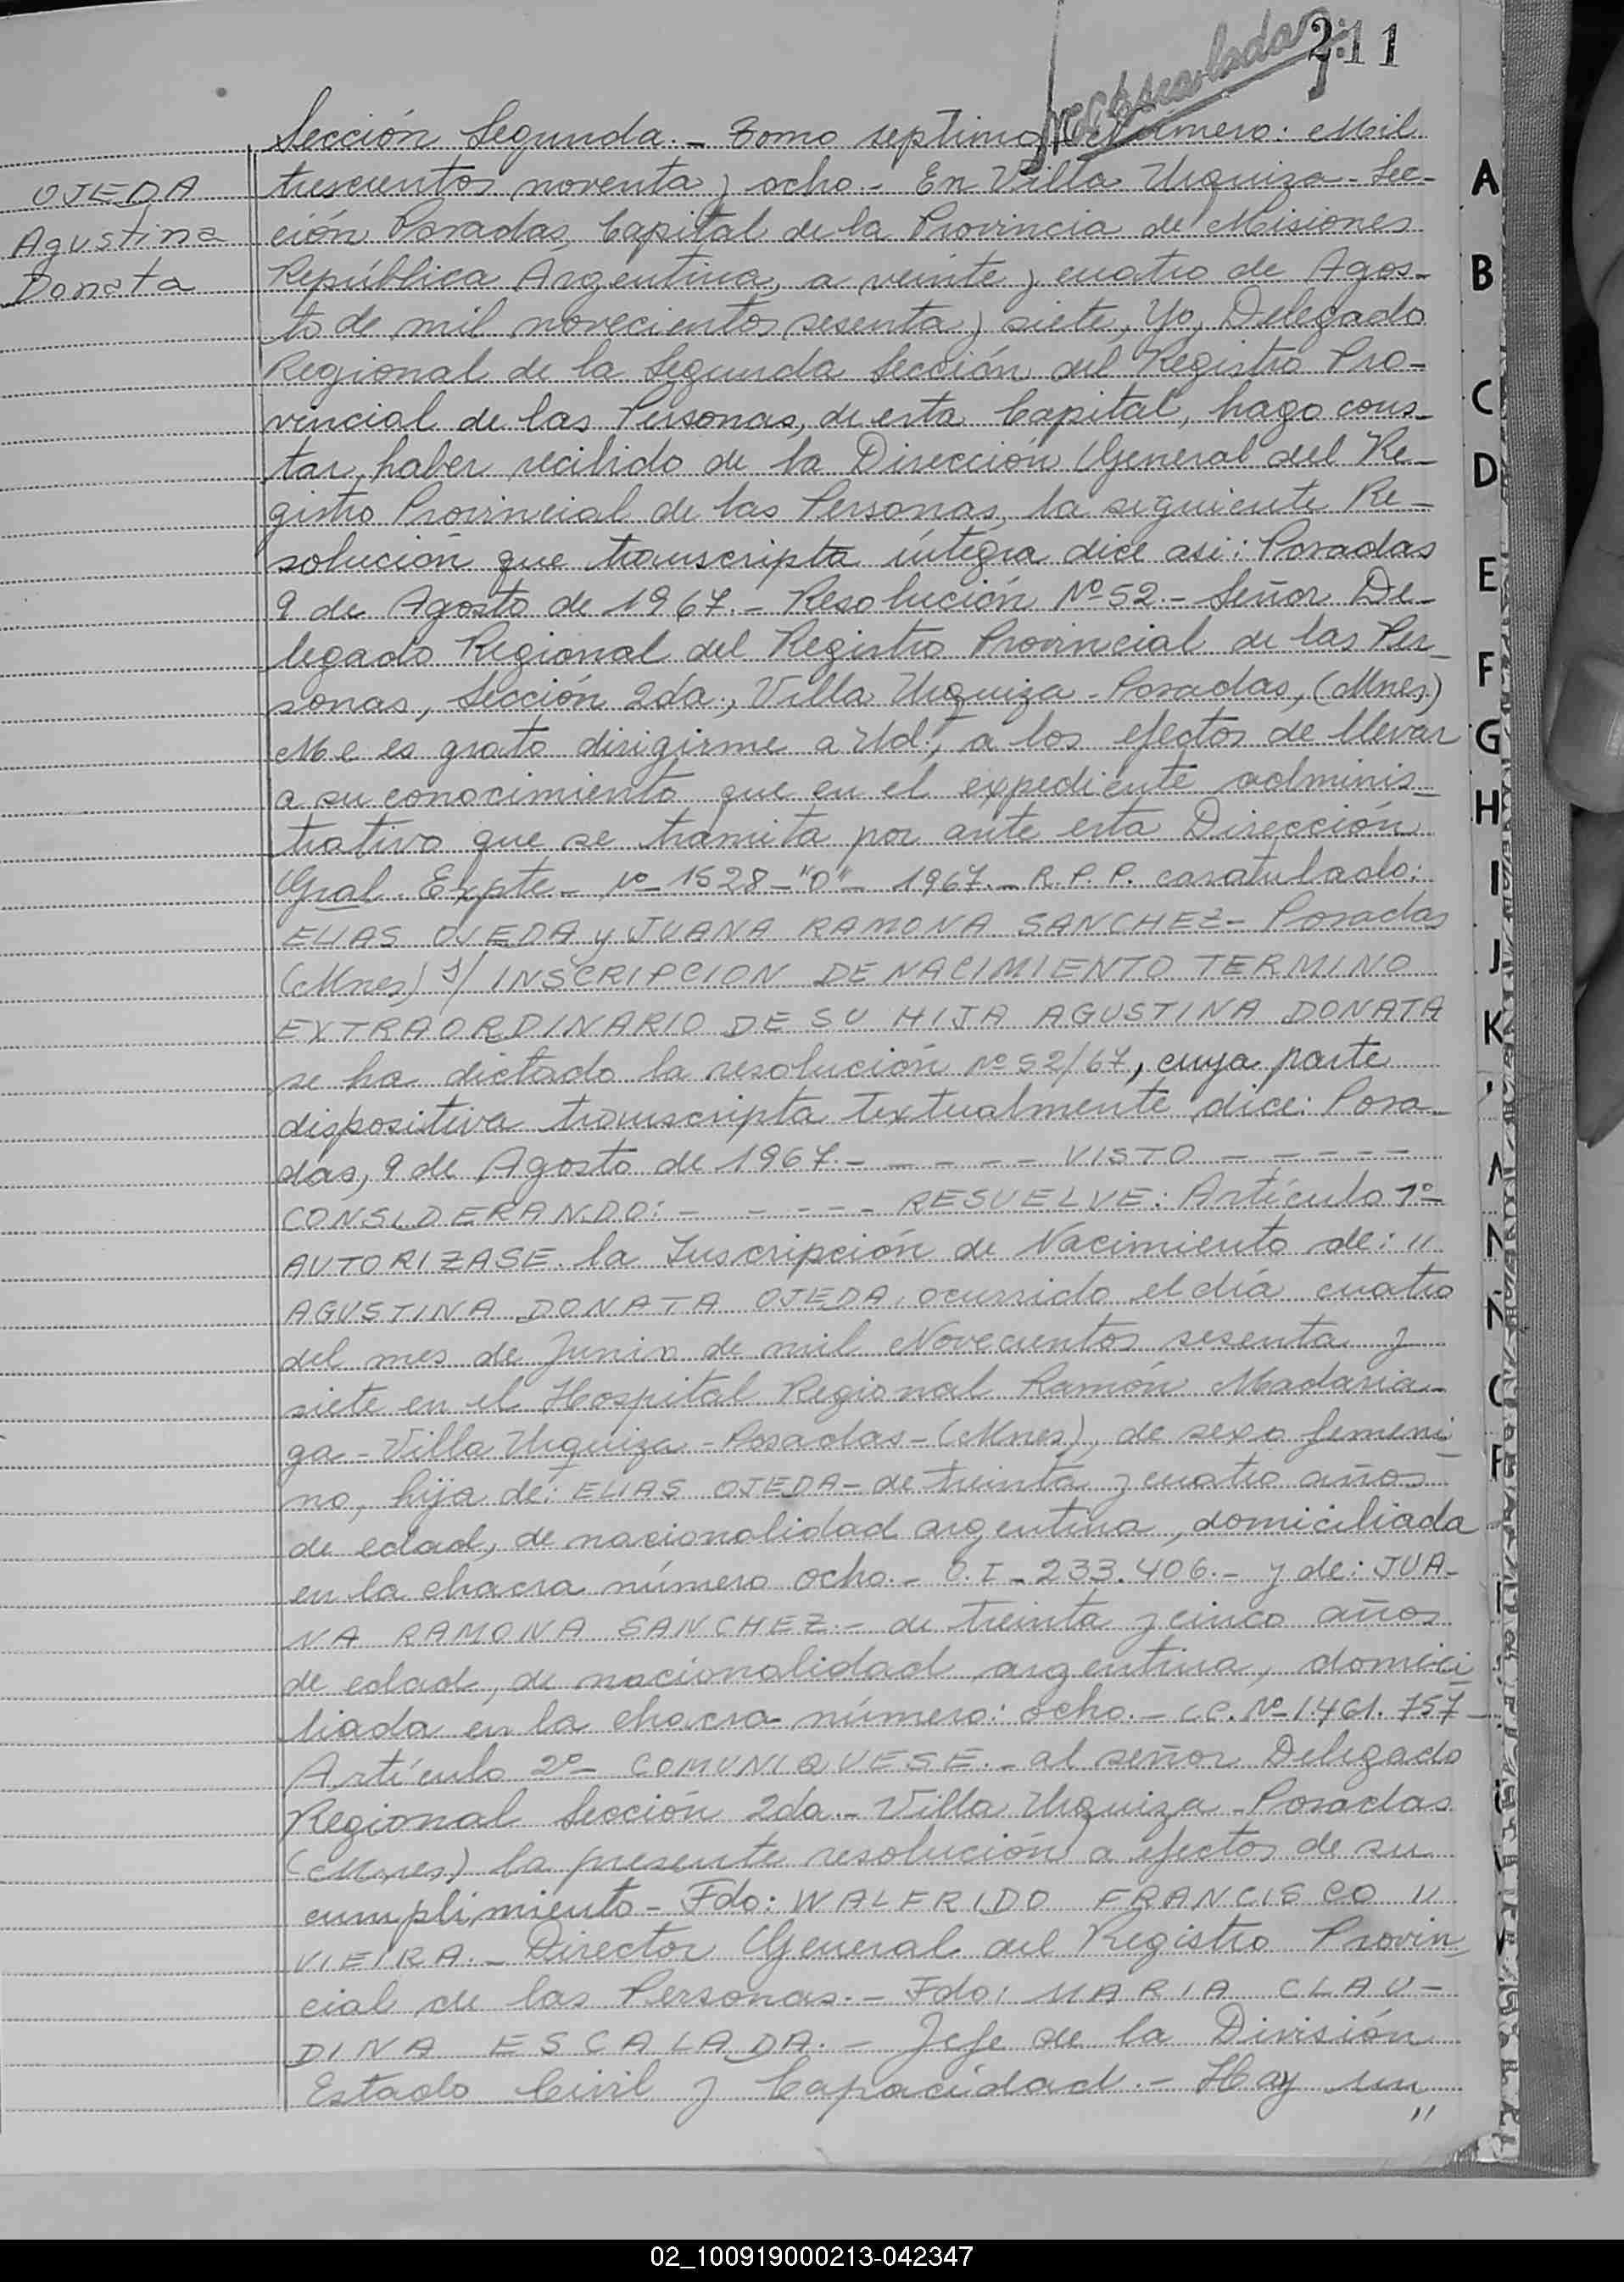 211
Sección Segunda.- Tomo septimo Número: Mil
OJEDA
Agustina
Donata
trescientos noventa y ocho.- En Villa Urquiza- Sec-
ción Posadas, Capital de la Provincia de Misiones
República Argentina, a veinte y cuatro de Agos-
to de mil novecientos sesenta y siete, Yo, Delegado
Regional de la Segunda Sección del Registro Pro-
vincial de las Personas, de esta Capital, hago cons-
tar, haber recibido de la Dirección General del Re-
gistro Provincial de las Personas, la siguiente Re-
solución que transcripta íntegra dice asi: Posadas
9 de Agosto de 1967.- Resolución Nº 52.- Señor De-
legado Regional del Registro Provincial de las Per-
sonas, Sección 2da., Villa Urquiza - Posadas, (Mnes)
Me es grato dirigirme a Ud., a los efectos de llevar
a su conocimiento que en el expediente adminis-
trativo que se tramita por ante esta Dirección
Gral. Expte- Nº 1528-"O"- 1967.- R.P.P. caratulado:
ELIAS OJEDA y JUANA RAMONA SANCHEZ- Posadas
(Mnes) s/ INSCRIPCION DE NACIMIENTO TERMINO
EXTRAORDINARIO DE SU HIJA AGUSTINA DONATA
se ha dictado la resolución Nº 52/67, cuya parte
dispositiva transcripta textualmente dice: Posa-
das, 9 de Agosto de 1967.- - - - - - VISTO - - - - -
CONSIDERANDO: - - - - - RESUELVE: Artículo 1º-
AUTORIZASE la Inscripción de Nacimiento de: "
AGUSTINA DONATA OJEDA, ocurrido el día cuatro
del mes de Junio de mil Novecientos sesenta y
siete en el Hospital Regional Ramón Madaria-
ga - Villa Urquiza - Posadas - (Mnes), de sexo femeni-
no, hija de: ELIAS OJEDA- de treinta y cuatro años
de edad, de nacionalidad argentina, domiciliada
en la chacra número ocho.- C.I - 233.406.- y de: JUA-
NA RAMONA SANCHEZ.- de treinta y cinco años
de edad, de nacionalidad argentina, domici-
liada en la chacra número: ocho.- L.C. Nº 1.461.757-
Artículo 2º- COMUNIQUESE.- al señor Delegado
Regional Sección 2da.- Villa Urquiza - Posadas
(Mnes) la presente resolución a efectos de su
cumplimiento- Fdo: WALFRIDO FRANCISCO "
VIEIRA.- Director General del Registro Provin-
cial de las Personas.- Fdo: MARIA CLAU-
DINA ESCALADA.- Jefe de la División
Estado Civil y Capacidad.- Hay un
"
A
B
C
D
E
F
G
H
I
J
K
N
Ñ
02_100919000213-042347